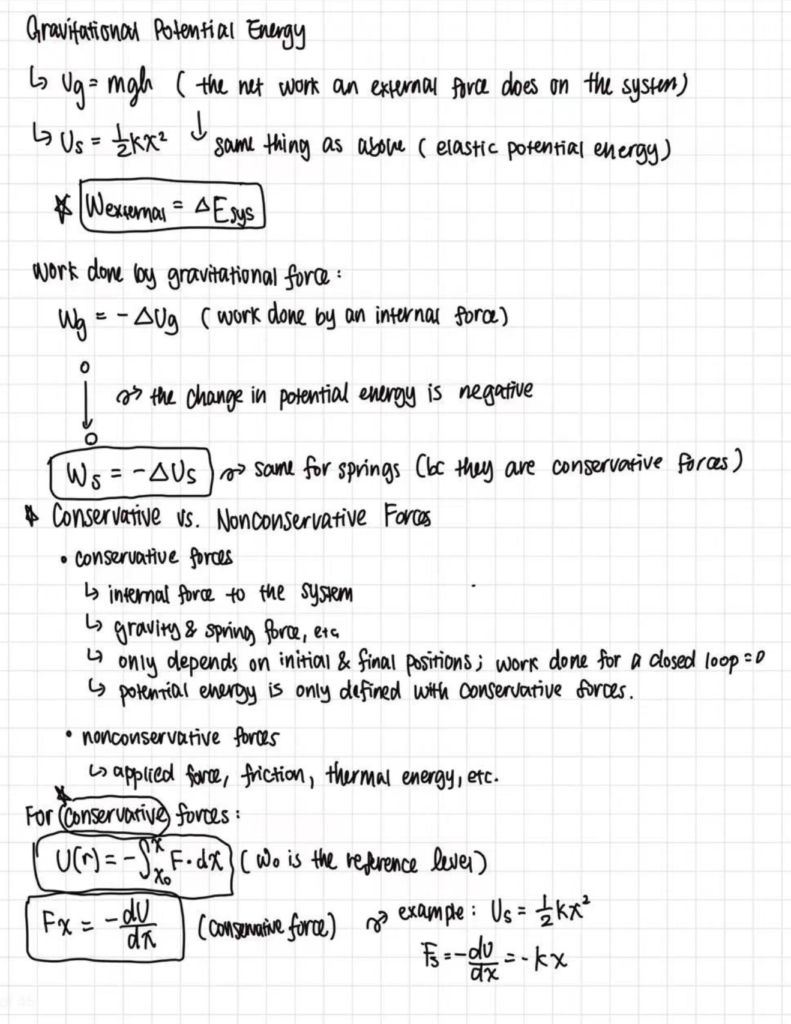 Gravitational Potential Energy
↳ Ug = mgh ( the net work an external force does on the system)
↳ Us = ½kx² ↓ same thing as above ( elastic potential energy)
* Wexternal = ΔEsys
Work done by gravitational force:
Wg = -ΔUg (work done by an internal force)
↝ the change in potential energy is negative
Ws = -ΔUs ↝ same for springs (bc they are conservative forces)
* Conservative vs. Nonconservative Forces
• conservative forces
↳ internal force to the system
↳ gravity & spring force, etc
↳ only depends on initial & final positions; work done for a closed loop = 0
↳ potential energy is only defined with conservative forces.
• nonconservative forces
↳ applied force, friction, thermal energy, etc.
*
For conservative forces:
U(r) = -∫ₓ₀ˣ F·dx (W₀ is the reference level)
Fx = -dU/dx (conservative force) ↝ example: Us = ½kx²
Fs = -dU/dx = -kx